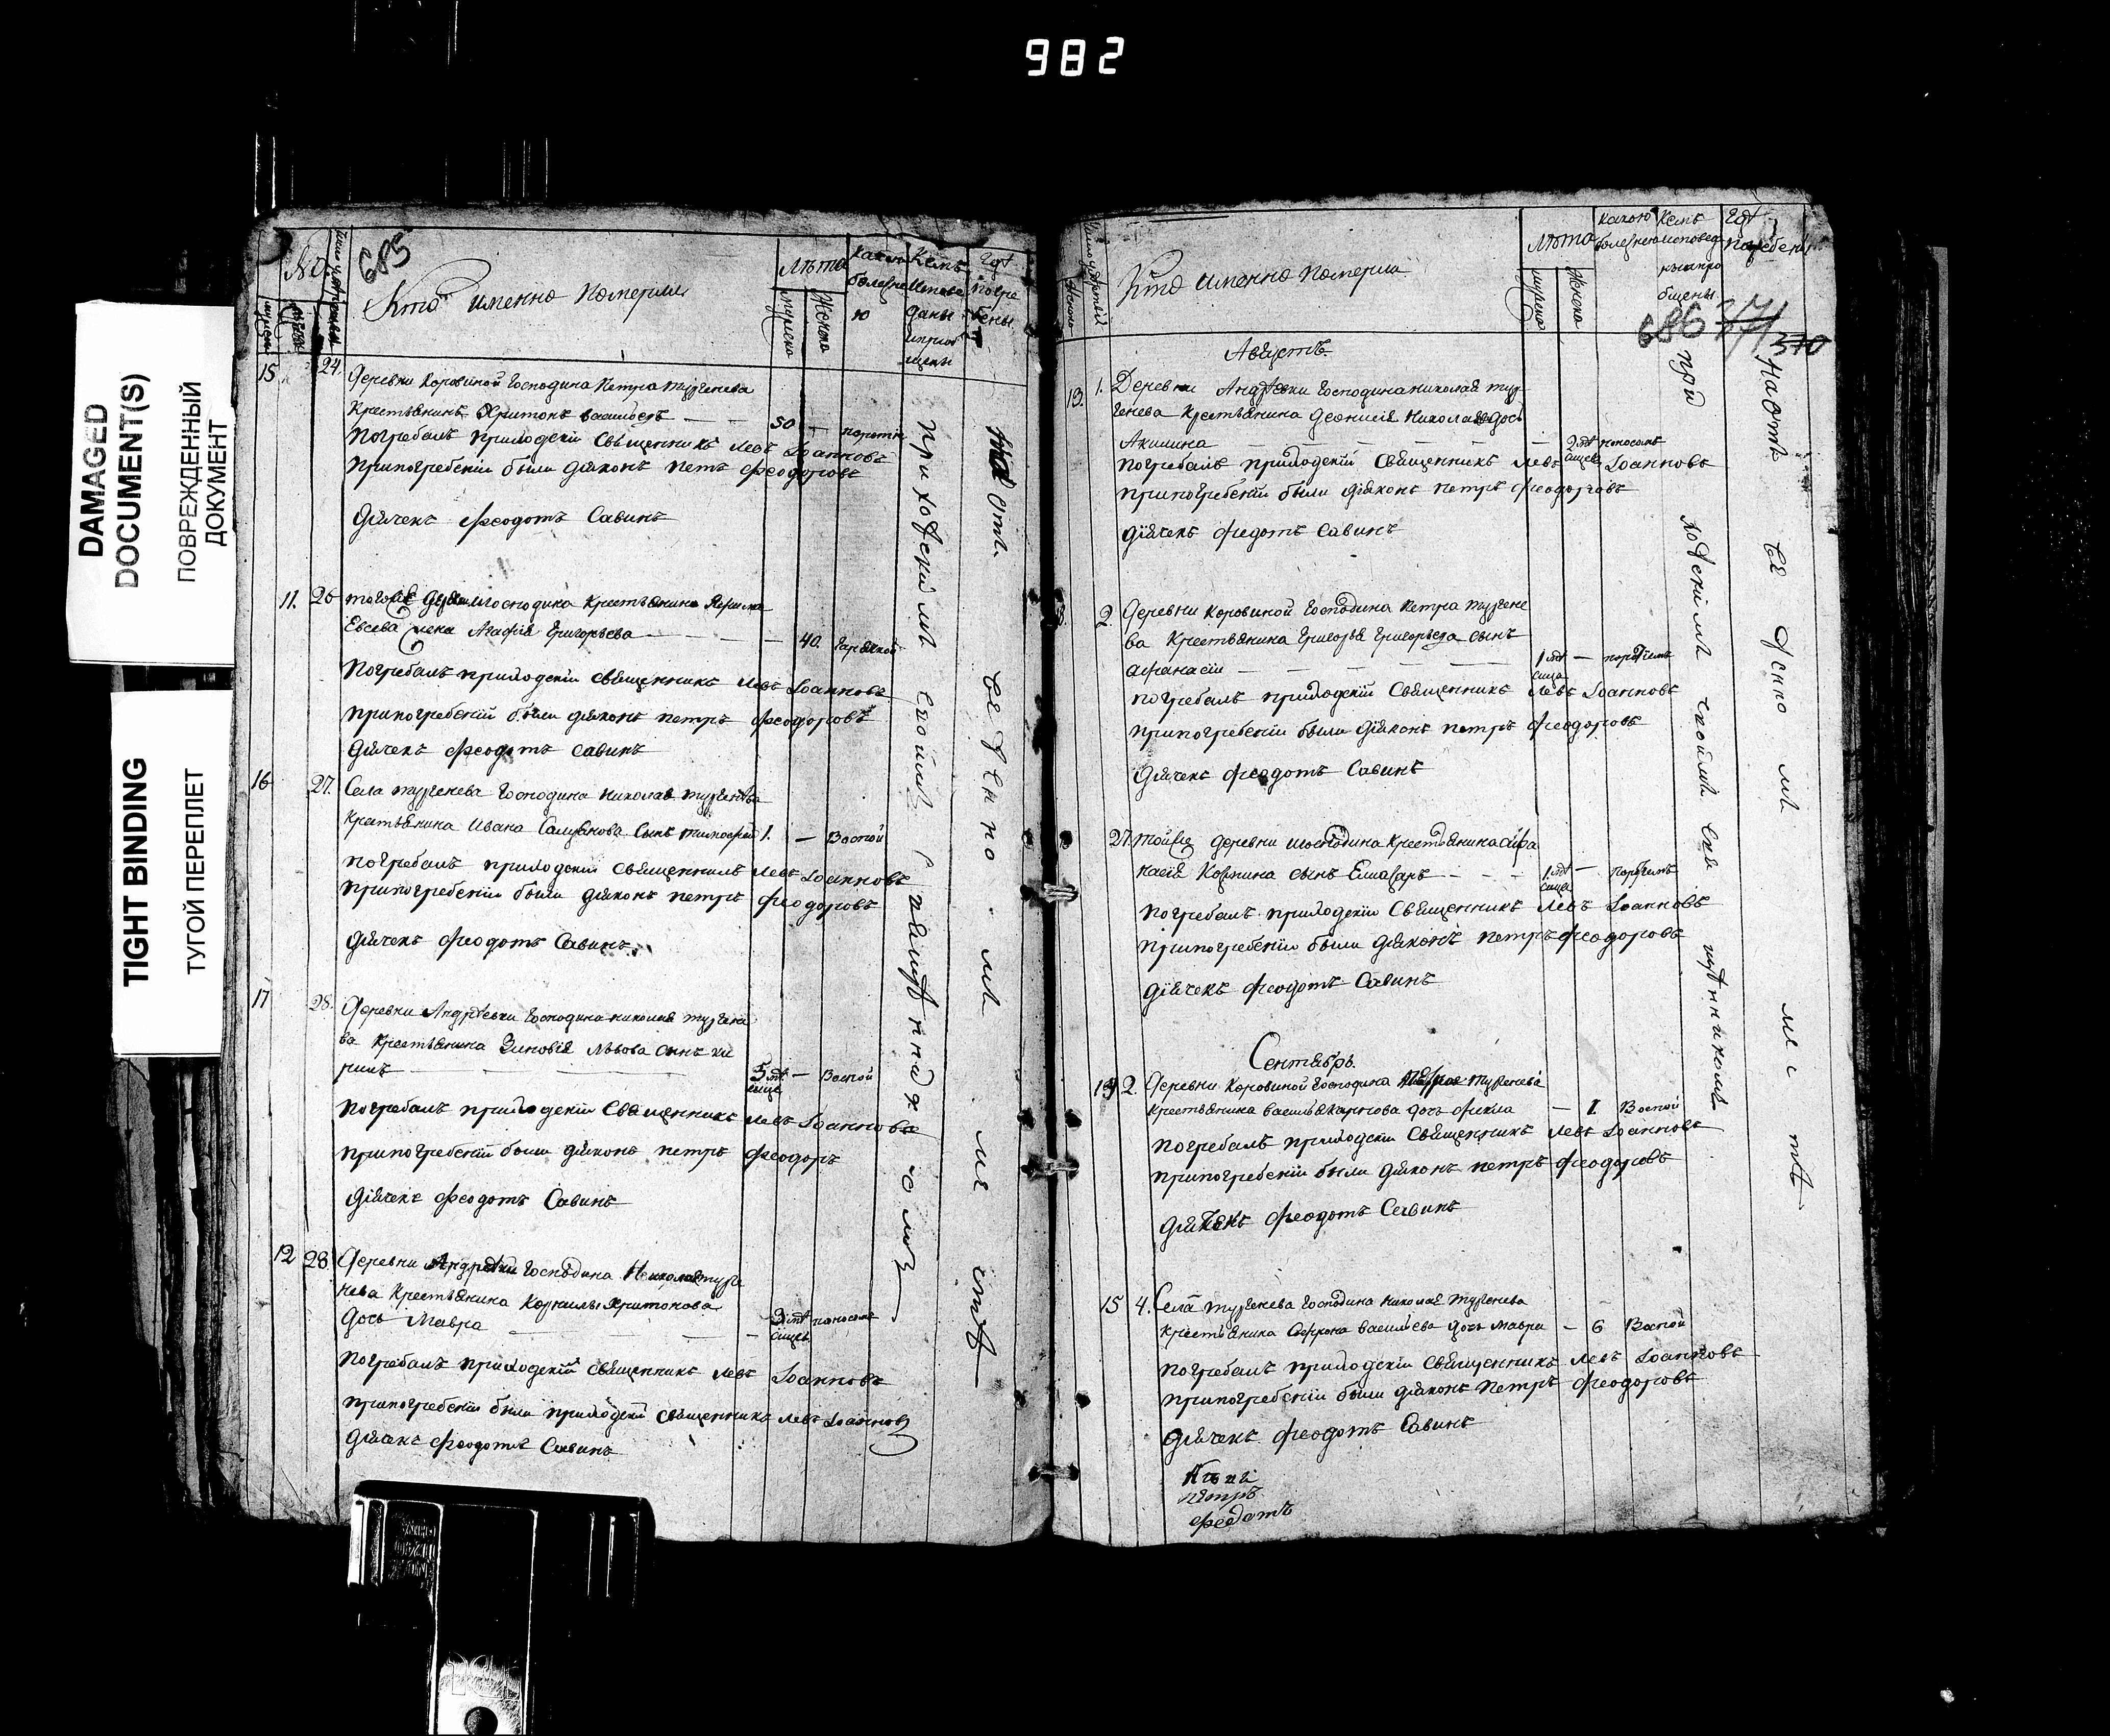 982
DAMAGED
DOCUMENT(S)
ПОВРЕЖДЕННЫЙ
ДОКУМЕНТ
TIGHT BINDING
ТУГОЙ ПЕРЕПЛЕТ
685
№
Кто именно померли
Лѣта
мужска
женска
какою
болезни
ю
Кемъ
Испове
даны
иприоб
щены
Гдѣ
погре
бены
15 24. Деревни Коровиной Господина Петра Тургенева
Крестьянинъ Харитонъ васильевъ 50 —
Погребалъ приходскій Священникъ Левъ Іоанновъ
Припогребеніи были діяконъ петъ Феодоровъ
Діячекъ Феодотъ Савинъ
11. 26 Господина Крестьянина
Евсева жена Агафія Григорьева — 40. горячкой
Погребалъ приходскій священникъ Левъ Іоанновъ
припогребеній были діяконъ петръ Феодоровъ
Діячекъ Феодотъ Савинъ
16 27. Села Тургенева Господина Николая Тургенева
Крестьянина Ивана сынъ 1. — Воспой
погребалъ приходскій священникъ Левъ Іоанновъ
Припогребеніи были діяконъ петръ Феодоровъ
Діячекъ Феодотъ Савинъ
17 28. Деревни Андрѣевки Господина николая Тургене
ва Крестьянина Зиновія Львова сынъ ки
рилъ — 5 мѣ
сицъ — Воспой
Погребалъ приходскій Священникъ Левъ Іоанновъ
припогребеніи были діяконъ петръ Феодоръ
Діячекъ Феодотъ Савинъ
12 28 Деревни Андрѣевки Господина Николая турге
нева Крестьянина Корнилы Харитонова
дочь Мавра — 3 мѣ
сицъ поносомъ
Погребалъ приходскій священникъ Левъ Іоанновъ
припогребеніи были приходскій священникъ Левъ Іоанновъ
Діячекъ Феодотъ Савинъ
приходскимъ своимъ священникомъ
На отъ веденномъ местѣ
Кто именно померли
Лѣта
мужска
женска
какою
болезнею
Кемъ
исповед
ны и прио
бщены
Гдѣ
погребены
686 371 370
Августъ
13. 1. Деревни Андрѣевки Господина николая тур
генева Крестьянина Деонисія Николаева дочь
Акилина — 2 мѣ
сицъ поносомъ
погребалъ приходскій Священникъ Левъ Іоанновъ
припогребеніи были діяконъ петръ Феодоровъ
діячекъ Федотъ Савинъ
2. Деревни Коровиной Господина Петра Тургене
ва Крестьянина Григорья Григорьева сынъ
Афанасіи — 1 мѣ
сица —
погребалъ приходскій Священникъ Левъ Іоанновъ
припогребеніи были діяконъ петръ Феодоровъ
Діячекъ Феодотъ Савинъ
27. тойже деревни Господина Крестьянина Афа
насія Козмина сынъ — 1 мѣ
сица —
погребалъ приходскіи Священникъ Левъ Іоанновъ
припогребеніи были діяконъ петръ Феодоровъ
Діячекъ Феодотъ Савинъ
Сентябрь
2. Деревни Коровиной Господина Петра Тургенева
Крестьянина василья Карпова дочь Фекла — 1 Воспой
погребалъ приходскіи Священникъ Левъ Іоанновъ
припогребеніи были діяконъ петръ Феодоровъ
Діячекъ Феодотъ Савинъ
15 4. Села Тургенева Господина Николая Тургенева
Крестьянина Софрона васильева дочь мавра — 6 Воспой
погребалъ приходскіи Священникъ Левъ Іоанновъ
припогребеніи были діяконъ Петръ Феодоровъ
Діячекъ Феодотъ Савинъ
петръ
федотъ
приходскимъ своимъ священникомъ
На отъ веденномъ местѣ